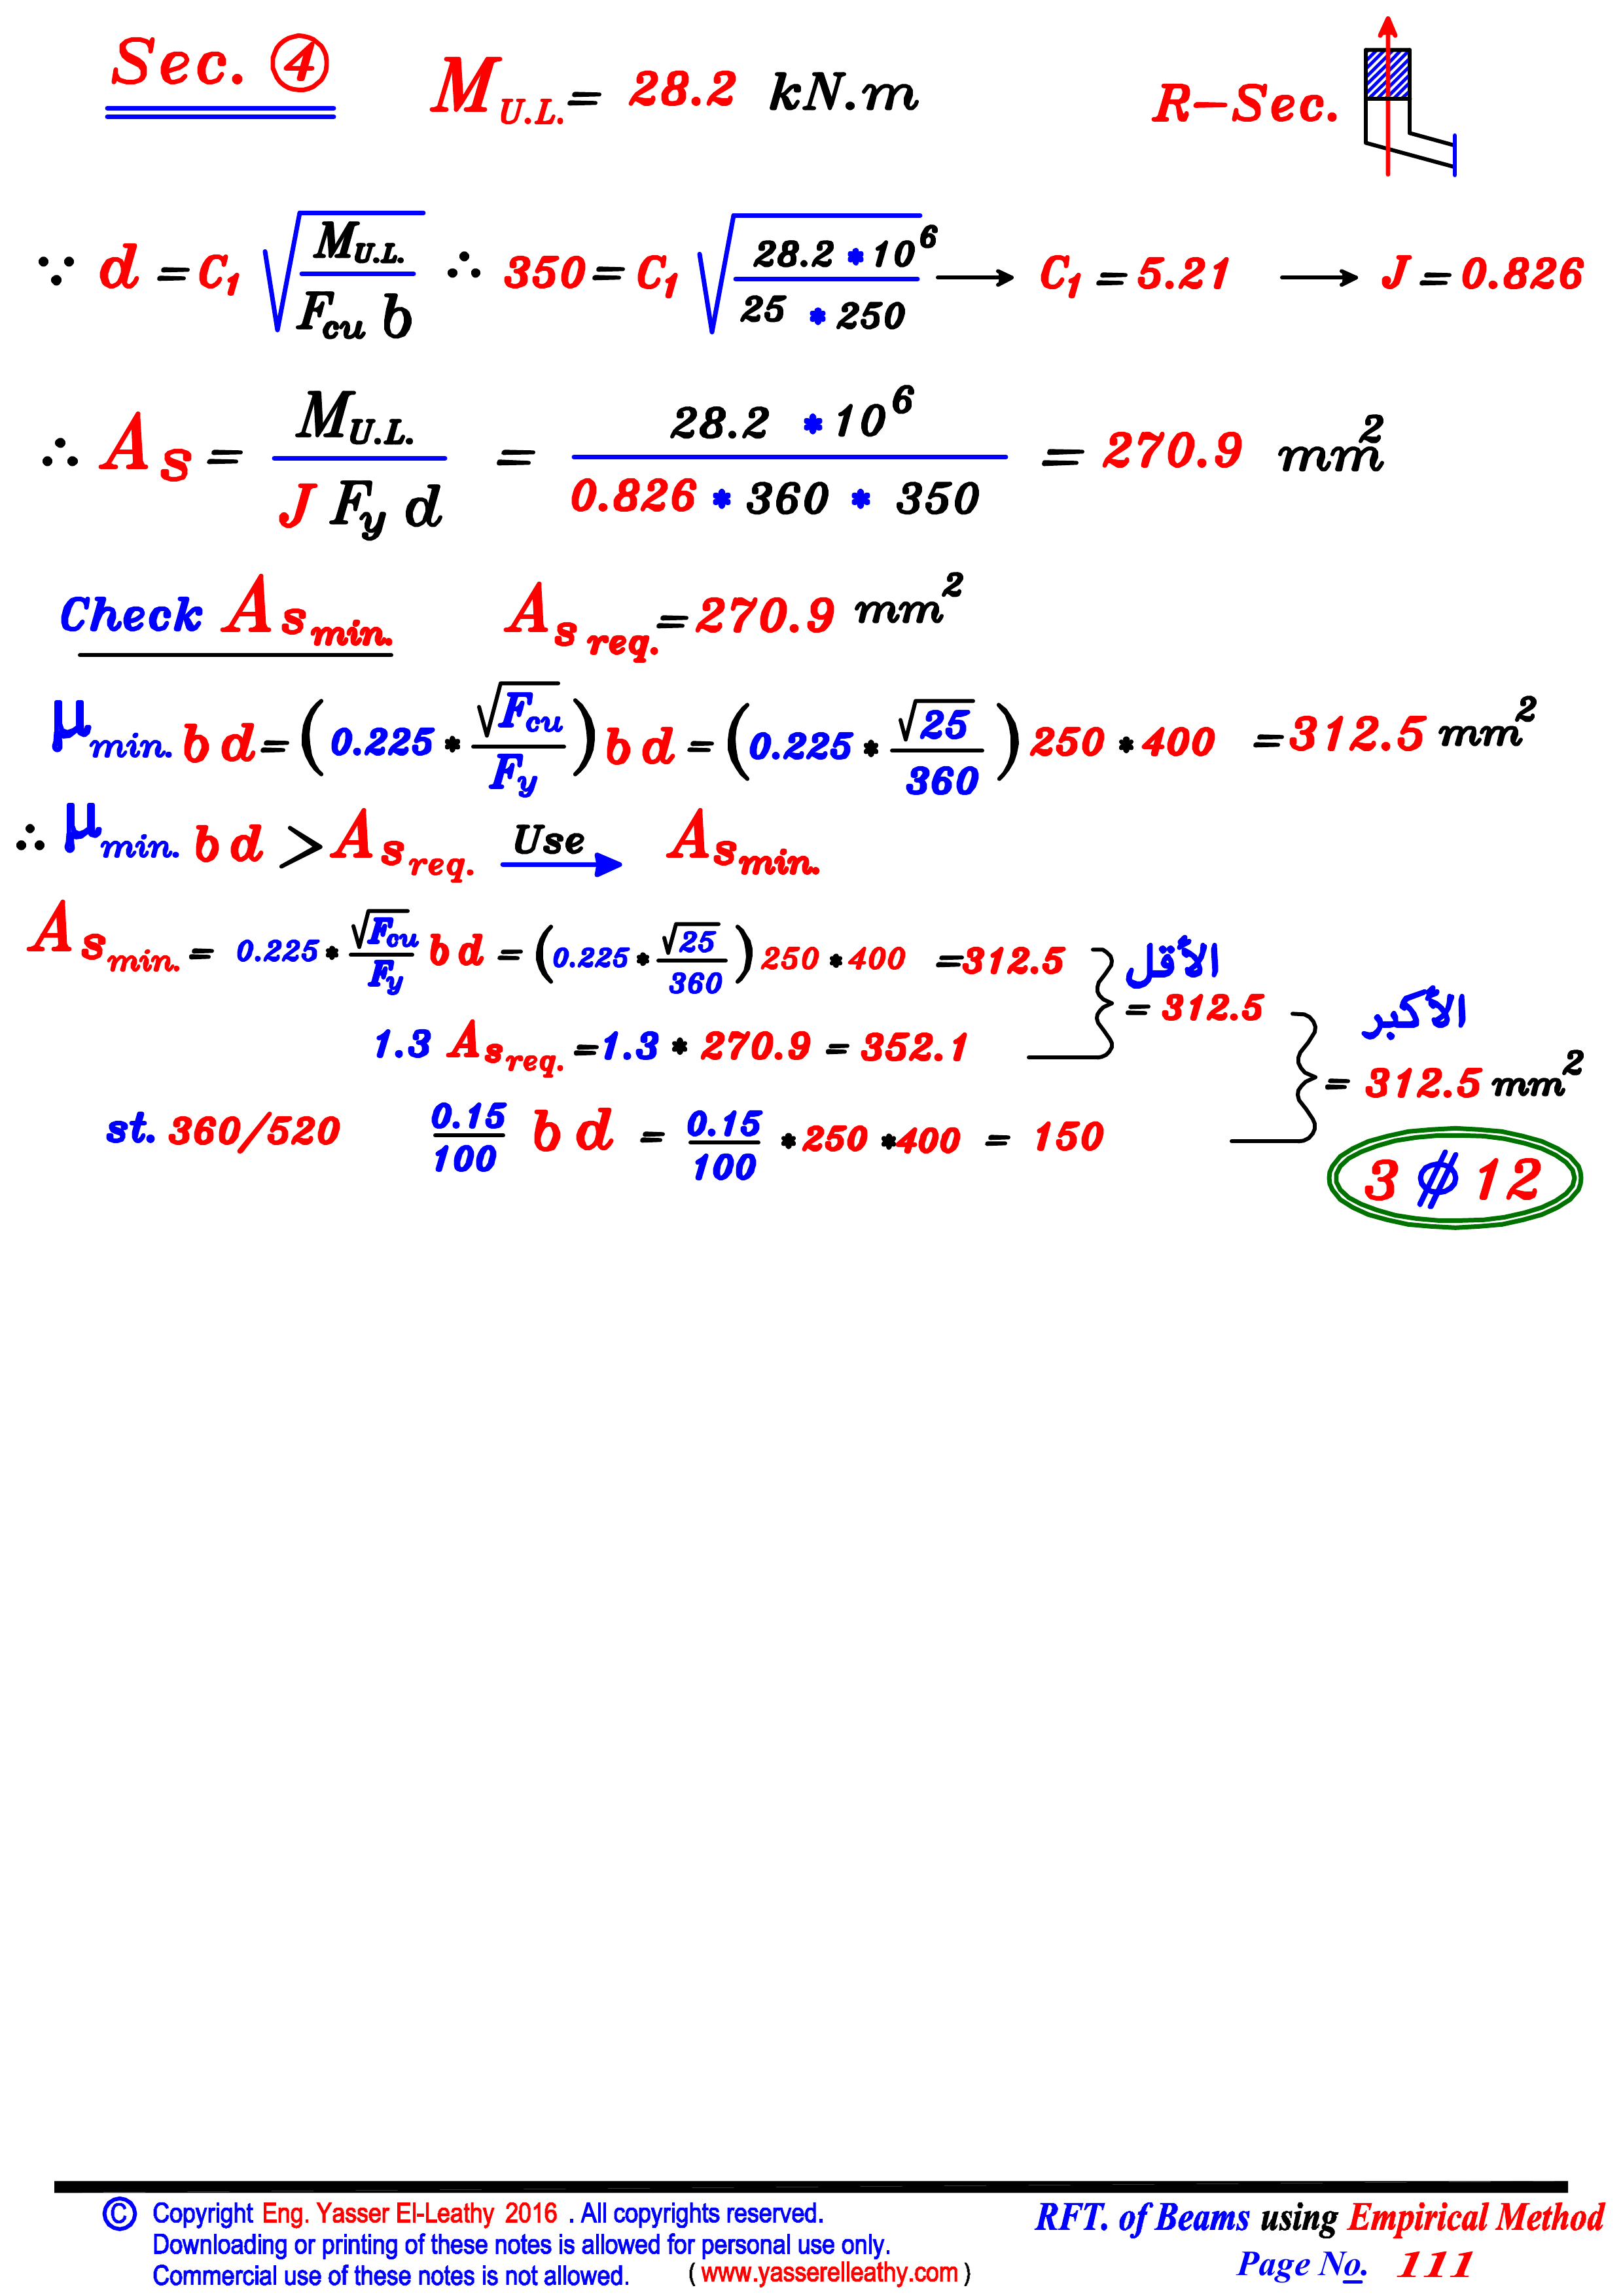 Sec. ④ M U.L. = 28.2 kN.m R-Sec.
∵ d = C1 √(M U.L. / Fcu b) ∴ 350 = C1 √(28.2 * 10^6 / 25 * 250) → C1 = 5.21 → J = 0.826
∴ As = M U.L. / J Fy d = 28.2 * 10^6 / 0.826 * 360 * 350 = 270.9 mm²
Check As min. As req. = 270.9 mm²
μ min. b d = (0.225 * √Fcu / Fy) b d = (0.225 * √25 / 360) 250 * 400 = 312.5 mm²
∴ μ min. b d > As req. Use → As min.
As min. = 0.225 * √Fcu / Fy b d = (0.225 * √25 / 360) 250 * 400 = 312.5 } الأقل = 312.5 } الأكبر = 312.5 mm²
1.3 As req. = 1.3 * 270.9 = 352.1
st. 360/520 0.15/100 b d = 0.15/100 * 250 * 400 = 150
3 ϕ 12
© Copyright Eng. Yasser El-Leathy 2016 . All copyrights reserved.
Downloading or printing of these notes is allowed for personal use only.
Commercial use of these notes is not allowed. ( www.yasserelleathy.com )
RFT. of Beams using Empirical Method
Page No. 111